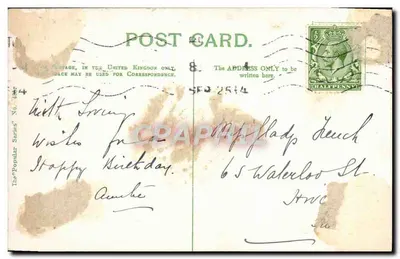 POST CARD.
IN THE UNITED KINGDOM ONLY,
MAY BE USED FOR CORRESPONDENCE.
The ADDRESS ONLY to be
written here.
HALFPENNY
8
4
SEP 25 14
The "Popular" Series No.
With Loving
Wishes for a
Happy Birthday.
Auntie
Miss Gladys French
65 Waterloo St